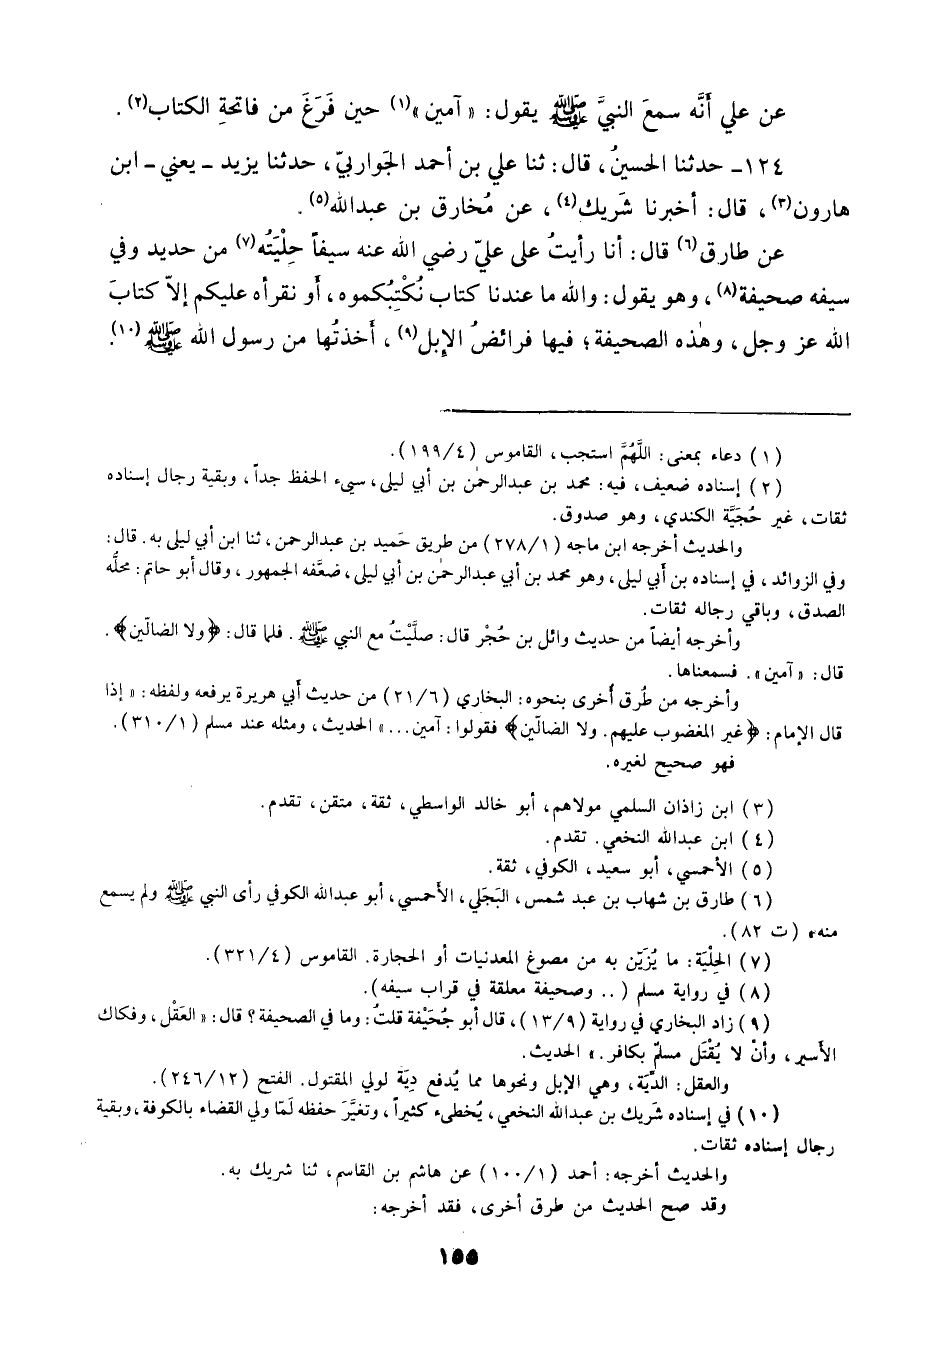 عن علي أَنَّه سمعَ النبيَّ ﷺ يقول: «آمين»(١) حين فَرَغَ من فاتحةِ الكتاب(٢).
١٢٤ــ حدثنا الحسينُ، قال: ثنا علي بن أحمد الجَواربيّ، حدثنا يزيد ــ يعني ــ ابن
هارون(٣)، قال: أخبرنا شَريك(٤)، عن مُخارق بن عبدالله(٥).
عن طارق(٦) قال: أنا رأيتُ على عليّ رضي الله عنه سيفاً حِلْيَتُه(٧) من حديد وفي
سيفه صحيفة(٨)، وهو يقول: والله ما عندنا كتاب نُكْتِبُكموه، أو نقرأه عليكم إلاّ كتابَ
الله عز وجل، وهٰذه الصحيفة؛ فيها فرائضُ الإبل(٩)، أخذتُها من رسول الله ﷺ(١٠).
(١) دعاء بمعنى: اللَّهُمَّ استجب، القاموس (١٩٩/٤).
(٢) إسناده ضعيف، فيه: محمد بن عبدالرحمٰن بن أبي ليلى، سيىء الحفظ جداً، وبقية رجال إسناده
ثقات، غير حُجَيَّة الكندي، وهو صدوق.
والحديث أخرجه ابن ماجه (٢٧٨/١) من طريق حَميد بن عبدالرحمن، ثنا ابن أبي ليلى به. قال:
وفي الزوائد، في إسناده بن أبي ليلى، وهو محمد بن أبي عبدالرحمٰن بن أبي ليلى، ضعَّفه الجمهور، وقال أبو حاتم: محلُّه
الصدق، وباقي رجاله ثقات.
وأخرجه أيضاً من حديث وائل بن حُجْر قال: صلَّيْتُ مع النبي ﷺ. فلما قال: ﴿ولا الضالّين﴾.
قال: «آمين». فسمعناها.
وأخرجه من طُرق أُخرى بنحوه: البخاري (٢١/٦) من حديث أبي هريرة يرفعه ولفظه: «إذا
قال الإمام: ﴿غير المغضوب عليهم. ولا الضالّين﴾ فقولوا: آمين...» الحديث، ومثله عند مسلم (٣١٠/١).
فهو صحيح لغيره.
(٣) ابن زاذان السلمي مولاهم، أبو خالد الواسطي، ثقة، متقن، تقدم.
(٤) ابن عبدالله النخعي. تقدم.
(٥) الأحمسي، أبو سعيد، الكوفي، ثقة.
(٦) طارق بن شهاب بن عبد شمس، البَجَلي، الأحمسي، أبو عبدالله الكوفي رأى النبي ﷺ ولم يسمع
منه، (ت ٨٢).
(٧) الحِلْيَة: ما يُزَيّن به من مصوغ المعدنيات أو الحجارة. القاموس (٣٢١/٤).
(٨) في رواية مسلم (.. وصحيفة معلقة في قراب سيفه).
(٩) زاد البخاري في رواية (١٣/٩)، قال أبو جُحَيْفة قلتُ: وما في الصحيفة؟ قال: «العَقْل، وفكاك
الأسير، وأنْ لا يُقْتَل مسلمٌ بكافر.» الحديث.
والعقل: الدِّيَة، وهي الإبل ونحوها مما يُدفع دِيَة لولي المقتول. الفتح (٢٤٦/١٢).
(١٠) في إسناده شَريك بن عبدالله النخعي، يُخطىء كثيراً، وتغيَّرَ حفظه لَمّا ولي القضاء بالكوفة، وبقية
رجال إسناده ثقات.
والحديث أخرجه: أحمد (١٠٠/١) عن هاشم بن القاسم، ثنا شريك به.
وقد صح الحديث من طرق أخرى، فقد أخرجه:
١٥٥